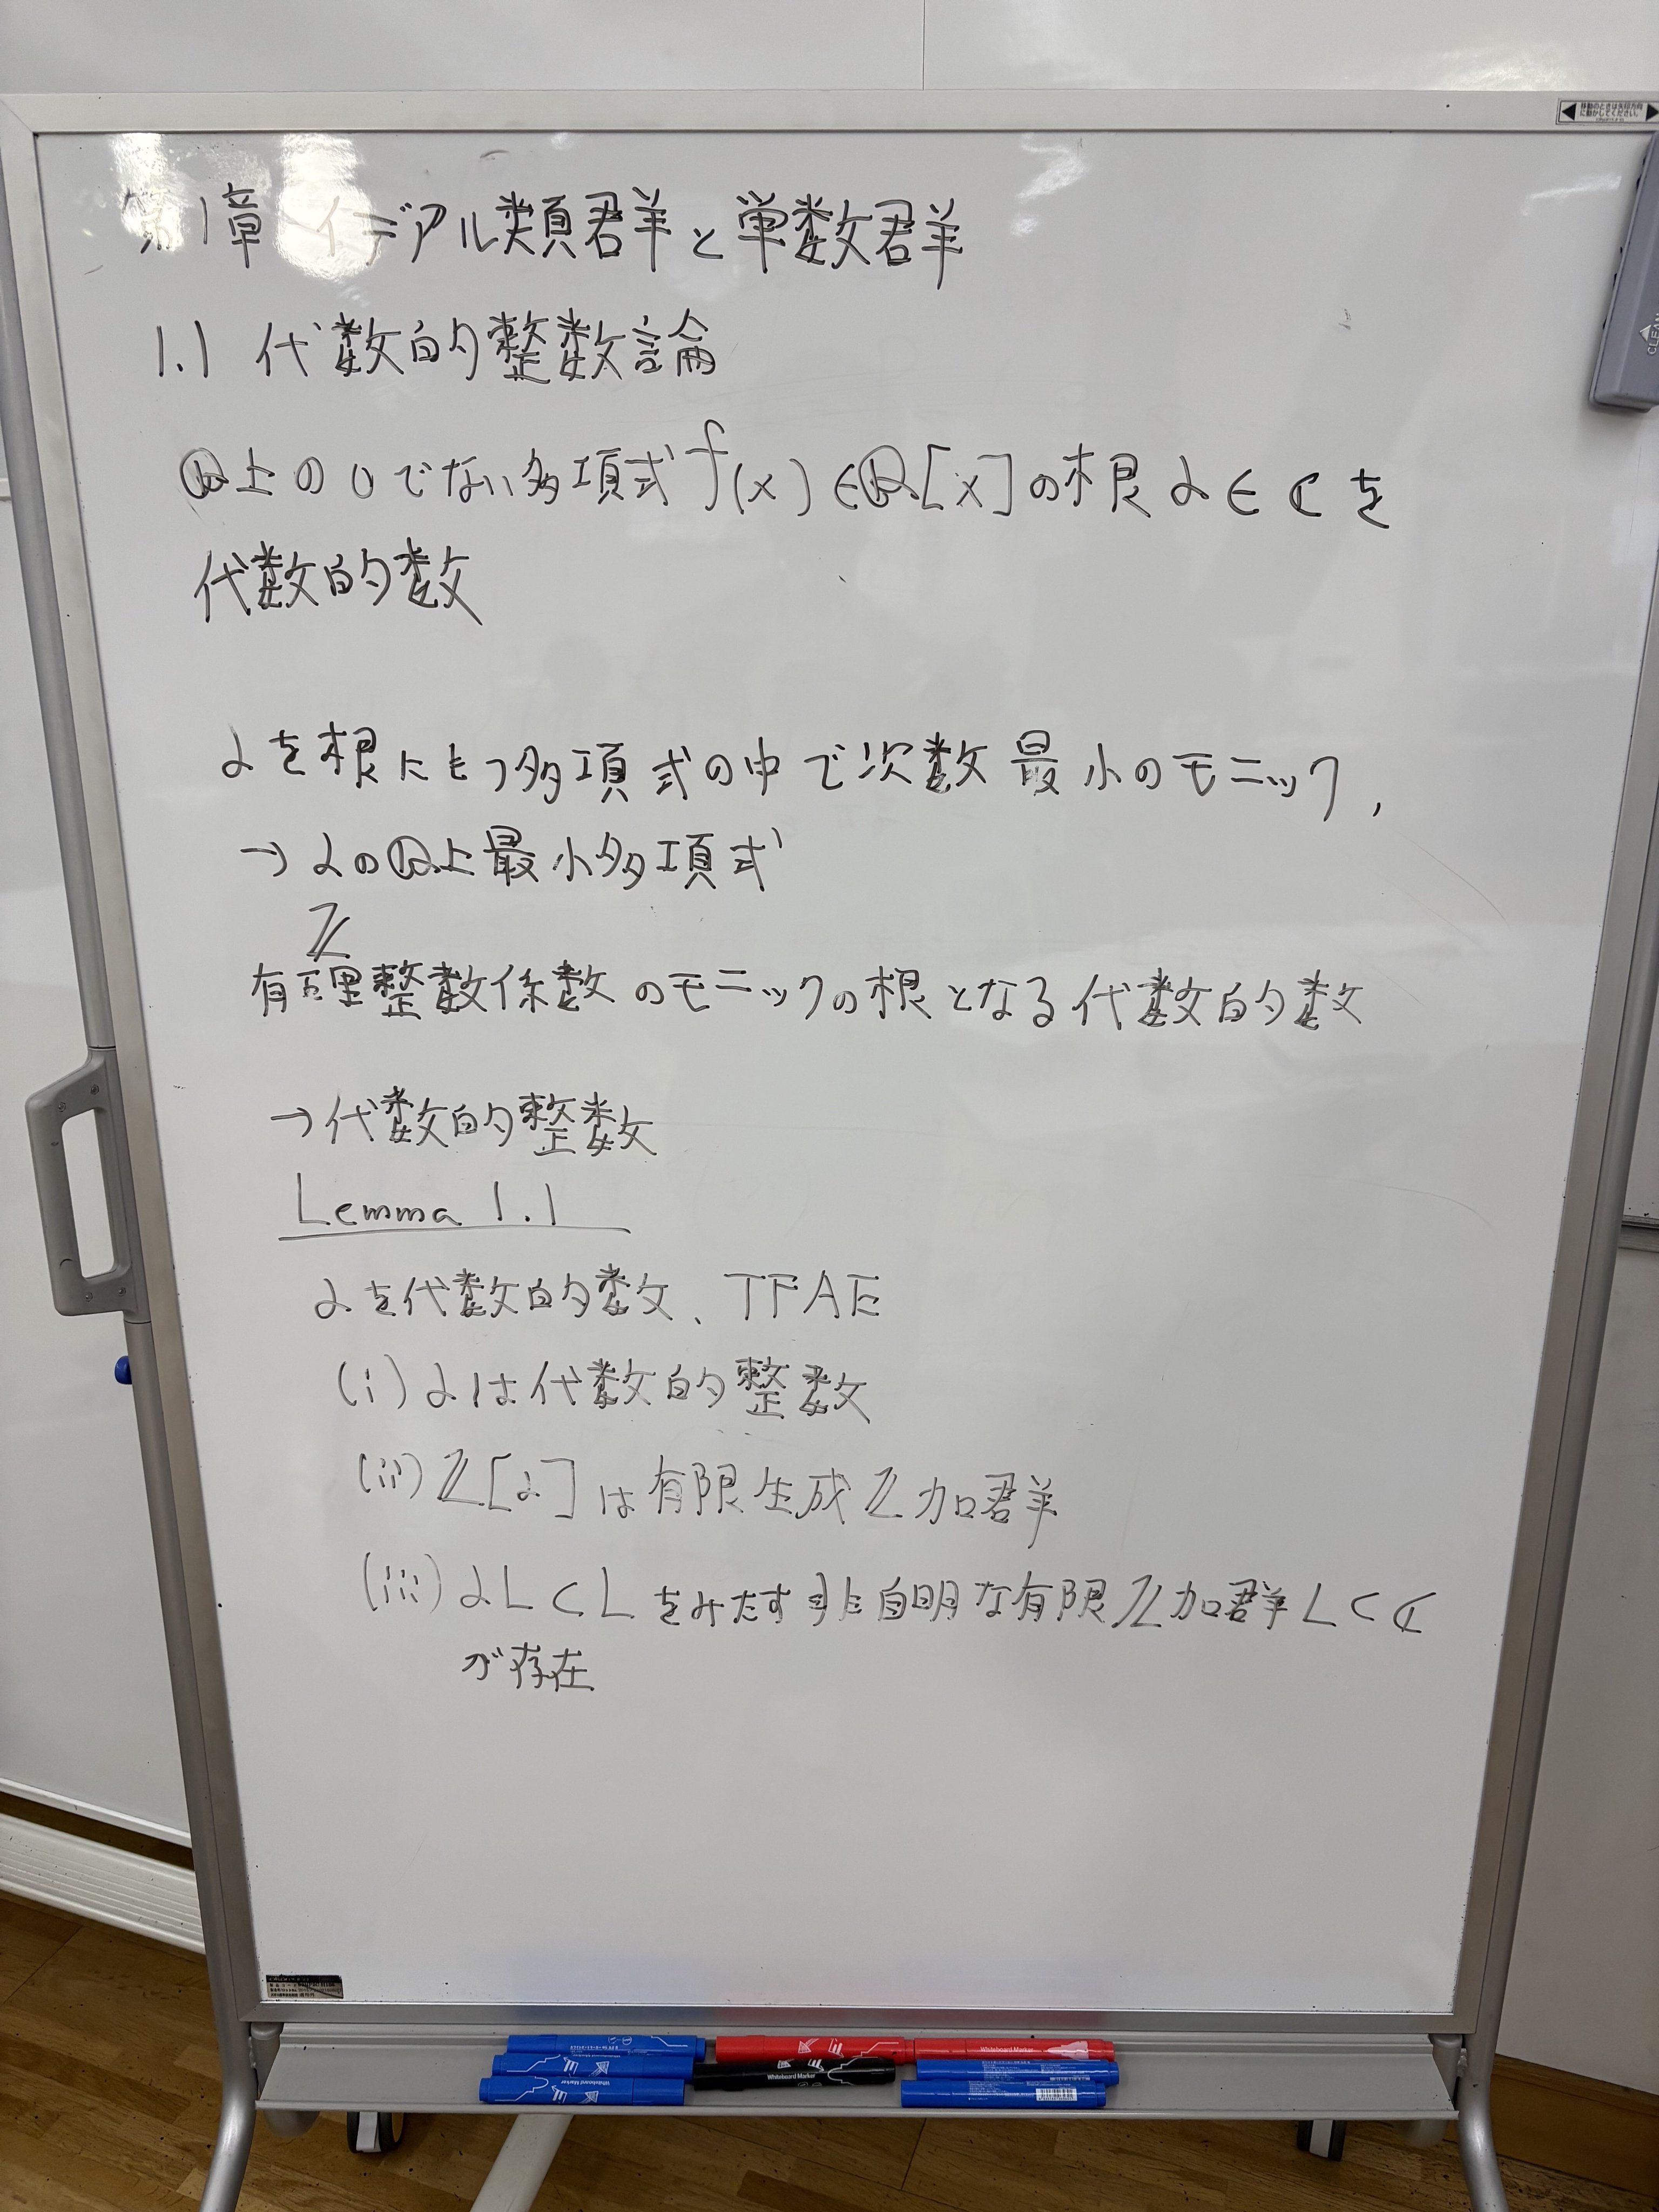 移動のときは矢印方向
に動かしてください。
CLEAN
第1章 イデアル類群と単数群
1.1 代数的整数論
ℚ上の0でない多項式f(x)∈ℚ[x]の根α∈ℂを
代数的数
αを根にもつ多項式の中で次数最小のモニック,
→αのℚ上最小多項式
ℤ
有理整数係数のモニックの根となる代数的数
→代数的整数
Lemma 1.1
αを代数的数、TFAE
(i)αは代数的整数
(ii)ℤ[α]は有限生成ℤ加群
(iii)αL⊂Lをみたす非自明な有限ℤ加群L⊂ℂ
が存在
Whiteboard Marker
Whiteboard Marker
Whiteboard Marker